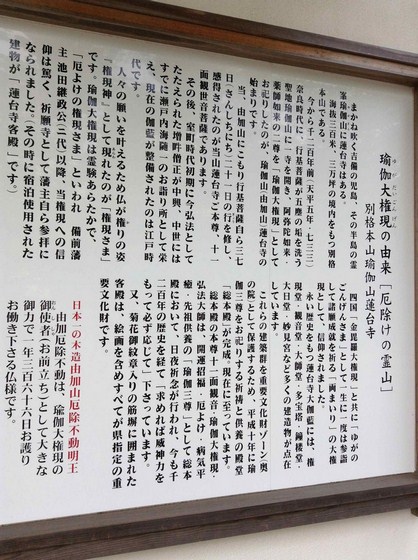 瑜伽大権現の由来「厄除けの霊山」
ゆがだいごんげん
別格本山瑜伽山蓮台寺
まかね吹く吉備の児島、その半島の霊
峯瑜伽山に蓮台寺はある。
海抜三百米、三万坪の境内をもつ別格
本山である。
今から千二百年前(天平五年・七三三)
奈良時代に、行基菩薩が五塵の垢を洗う
聖地瑜伽山に一寺を開き、阿弥陀如来・
薬師如来の二尊を「瑜伽大権現」として
お祀りしたのが、瑜伽山(由加山)蓮台寺の
始まりです。
当、由加山にこもり行基菩薩自ら三七
日(さんしちにち)二十一日の行を修し、
感得されたのが当山蓮台寺ご本尊、十一
面観世音菩薩であります。
その後、室町時代初期に今弘法として
たたえられた増吽僧正が中興、中世には
すでに瀬戸内海随一のお詣り所として栄
え、現在の伽藍が整備されたのは江戸時
代です。
人々の願いを叶えるため仏が権りの姿
「権現神」として現れたのが「権現さま」
です。瑜伽大権現は霊験あらたかで、
「厄よけの権現さま」といわれ 備前藩
主池田継政公(三代)以降、当権現への信
仰は篤く、祈願寺として藩主自ら参拝に
なられました。その時に宿泊使用された
建物が「蓮台寺客殿」です。
四国「金毘羅大権現」と共に「ゆがの
ごんげんさま」として「生に一度は参詣
して諸願成就を祈る」「両まいり」の大権
現として信仰されました。
永い歴史をもつ蓮台寺大伽藍には、権
現堂・観音堂・大師堂・多宝塔・鐘楼堂・
大日堂・妙見宮など多くの建造物が点在
しています。
これらの建築群を重要文化財ゾーン(奥
の院)として保護するため、平成十年に瑜
伽三尊をお祀りする祈祷と供養の殿堂
「総本殿」が完成。現在に至っています。
総本殿の本尊十一面観音・瑜伽大権現・
弘法大師は「開運招福・厄よけ・病気平
癒・先祖供養の「瑜伽三尊」として総本
殿において、日夜祈念が行われ、今も千
二百年の歴史を経て「求めれば威神力を
もって必ず応じて」下さっています。
又、菊花御紋章入りの筋塀に囲まれた
客殿は、絵画を含めすべてが県指定の重
要文化財です。
日本一の木造由加山厄除不動明王
由加厄除不動は、瑜伽大権現の
御使者(お前立ち)として大きな
御力で一年三百六十六日お護り
お働き下さる仏様です。